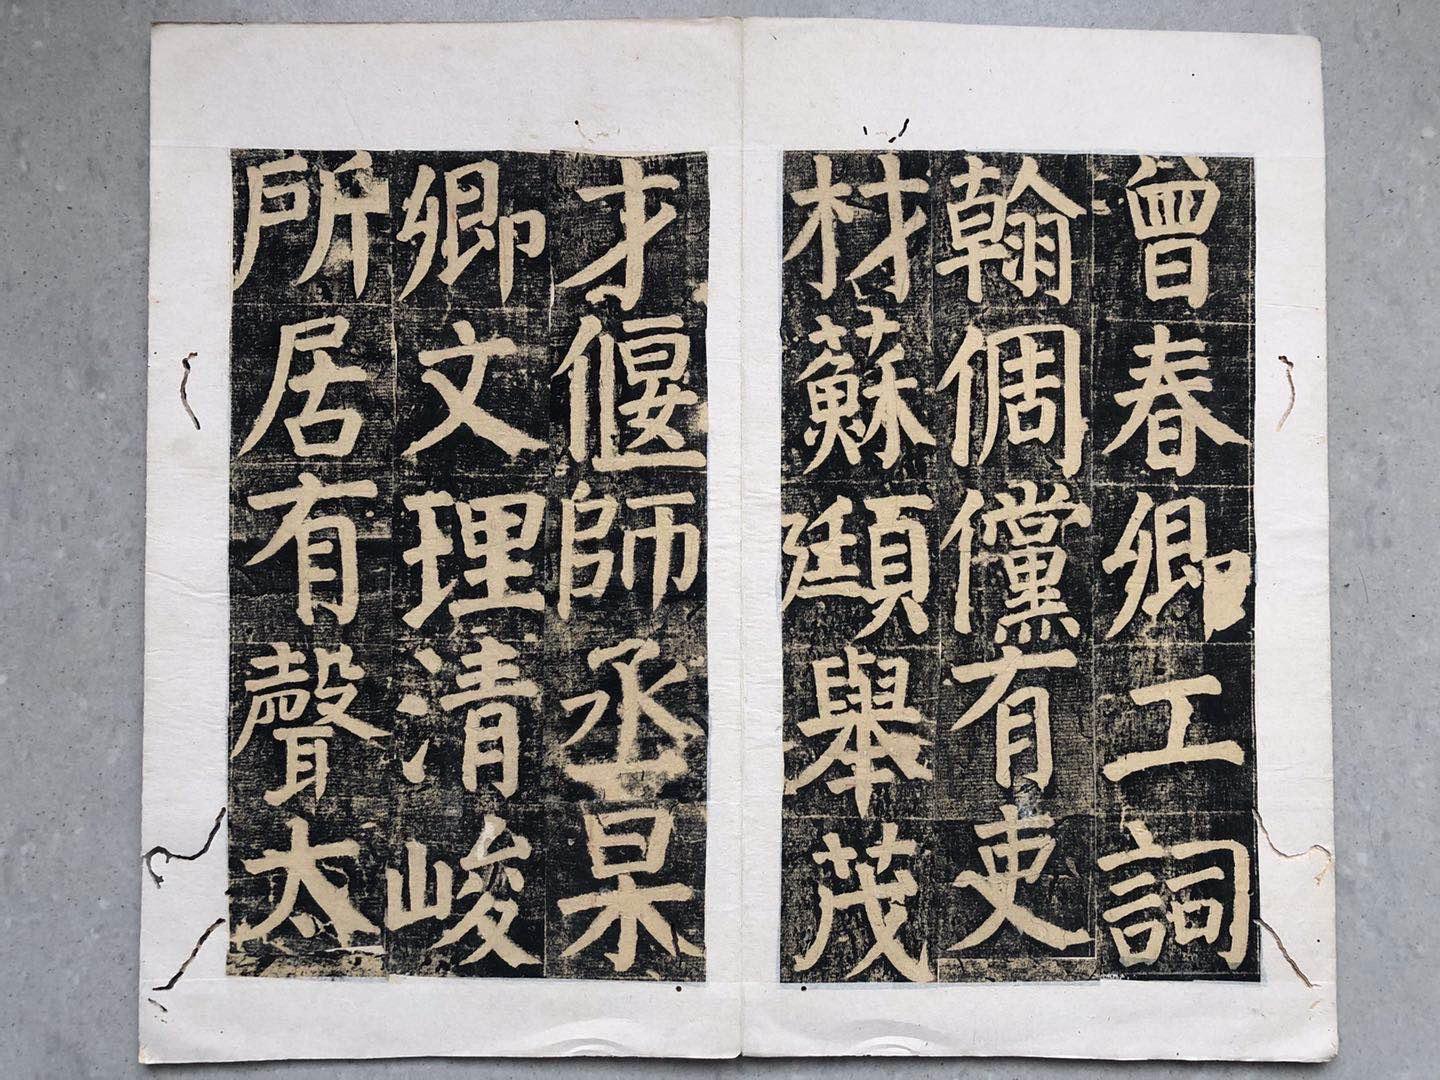 曾春卿工詞
翰倜儻有吏
材蘇頲舉茂
才偃師丞杲
卿文理清峻
所居有聲太